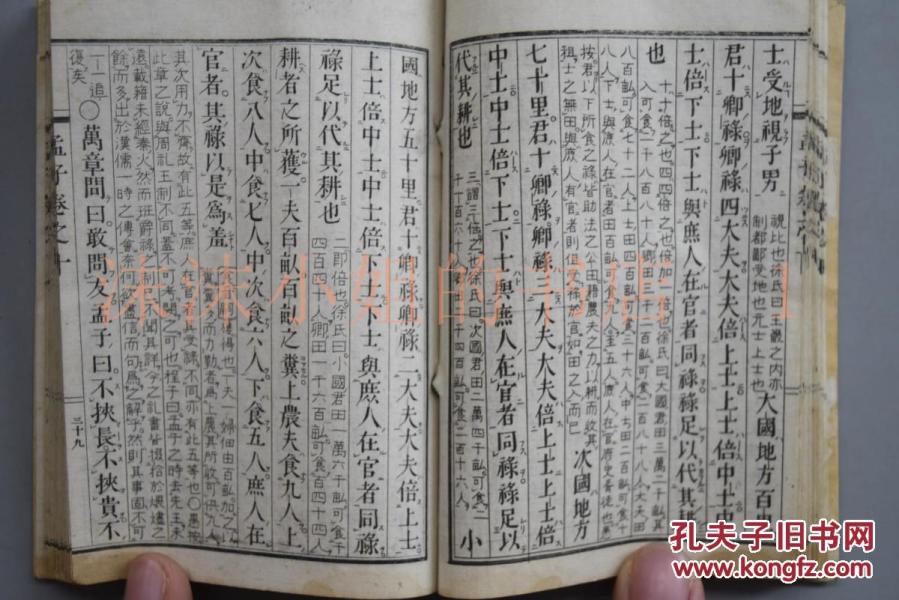 士受地視子男
視比也徐氏曰王畿之内亦
制都鄙受地也元士上士也
大國地方百里
君十卿祿卿祿四大夫大夫倍上士上士倍中士中
士倍下士下士與庶人在官者同祿祿足以代其耕
也
十十倍之也四四倍之也倍加一倍也徐氏曰大國君田三萬二千畝其
入可食二千八百八十人卿田三千二百畝可食二百八十八人大夫田
八百畝可食七十二人上士田四百畝可食三十六人中士田二百畝可食十
八人下士與庶人在官者田百畝可食九人至五人庶人在官府史胥徒也愚
按君以下所食之祿皆助法之公田藉農夫之力以耕而收其
租士之無田與庶人在官者則但受祿於官如田之入而已
次國地方
七十里君十卿祿卿祿三大夫大夫倍上士上士倍
中士中士倍下士下士與庶人在官者同祿祿足以
代其耕也
三謂三倍之也徐氏曰次國君田二萬四千畝可食二
千一百六十人卿田二千四百畝可食二百十六人
小
國地方五十里君十卿祿卿祿二大夫大夫倍上士
上士倍中士中士倍下士下士與庶人在官者同祿
祿足以代其耕也
二即倍也徐氏曰小國君田一萬六千畝可食千
四百四十人卿田一千六百畝可食百四十四人
耕者之所獲一夫百畝百畝之糞上農夫食九人上
次食八人中食七人中次食六人下食五人庶人在
官者其祿以是爲差
獲得也一夫一婦佃田百畝加之以
糞糞多而力勤者爲上農其所收可供九人
其次用力不齊故有此五等庶人在官者其受祿不同亦有此五等也○愚按
此章之說與周禮王制不同蓋不可考闕之可也程子曰孟子之時去先王未
遠載籍未經秦火然而班爵祿之制已不聞其詳今之禮書皆掇拾於煨燼之
餘而多出於漢儒一時之傅會奈何欲盡信而句爲之解乎然則其事固不可
一一追
復矣
○萬章問曰敢問友孟子曰不挾長不挾貴不
三十九
孟子卷之十
沫沫小姐的书店
孔夫子旧书网
www.kongfz.com